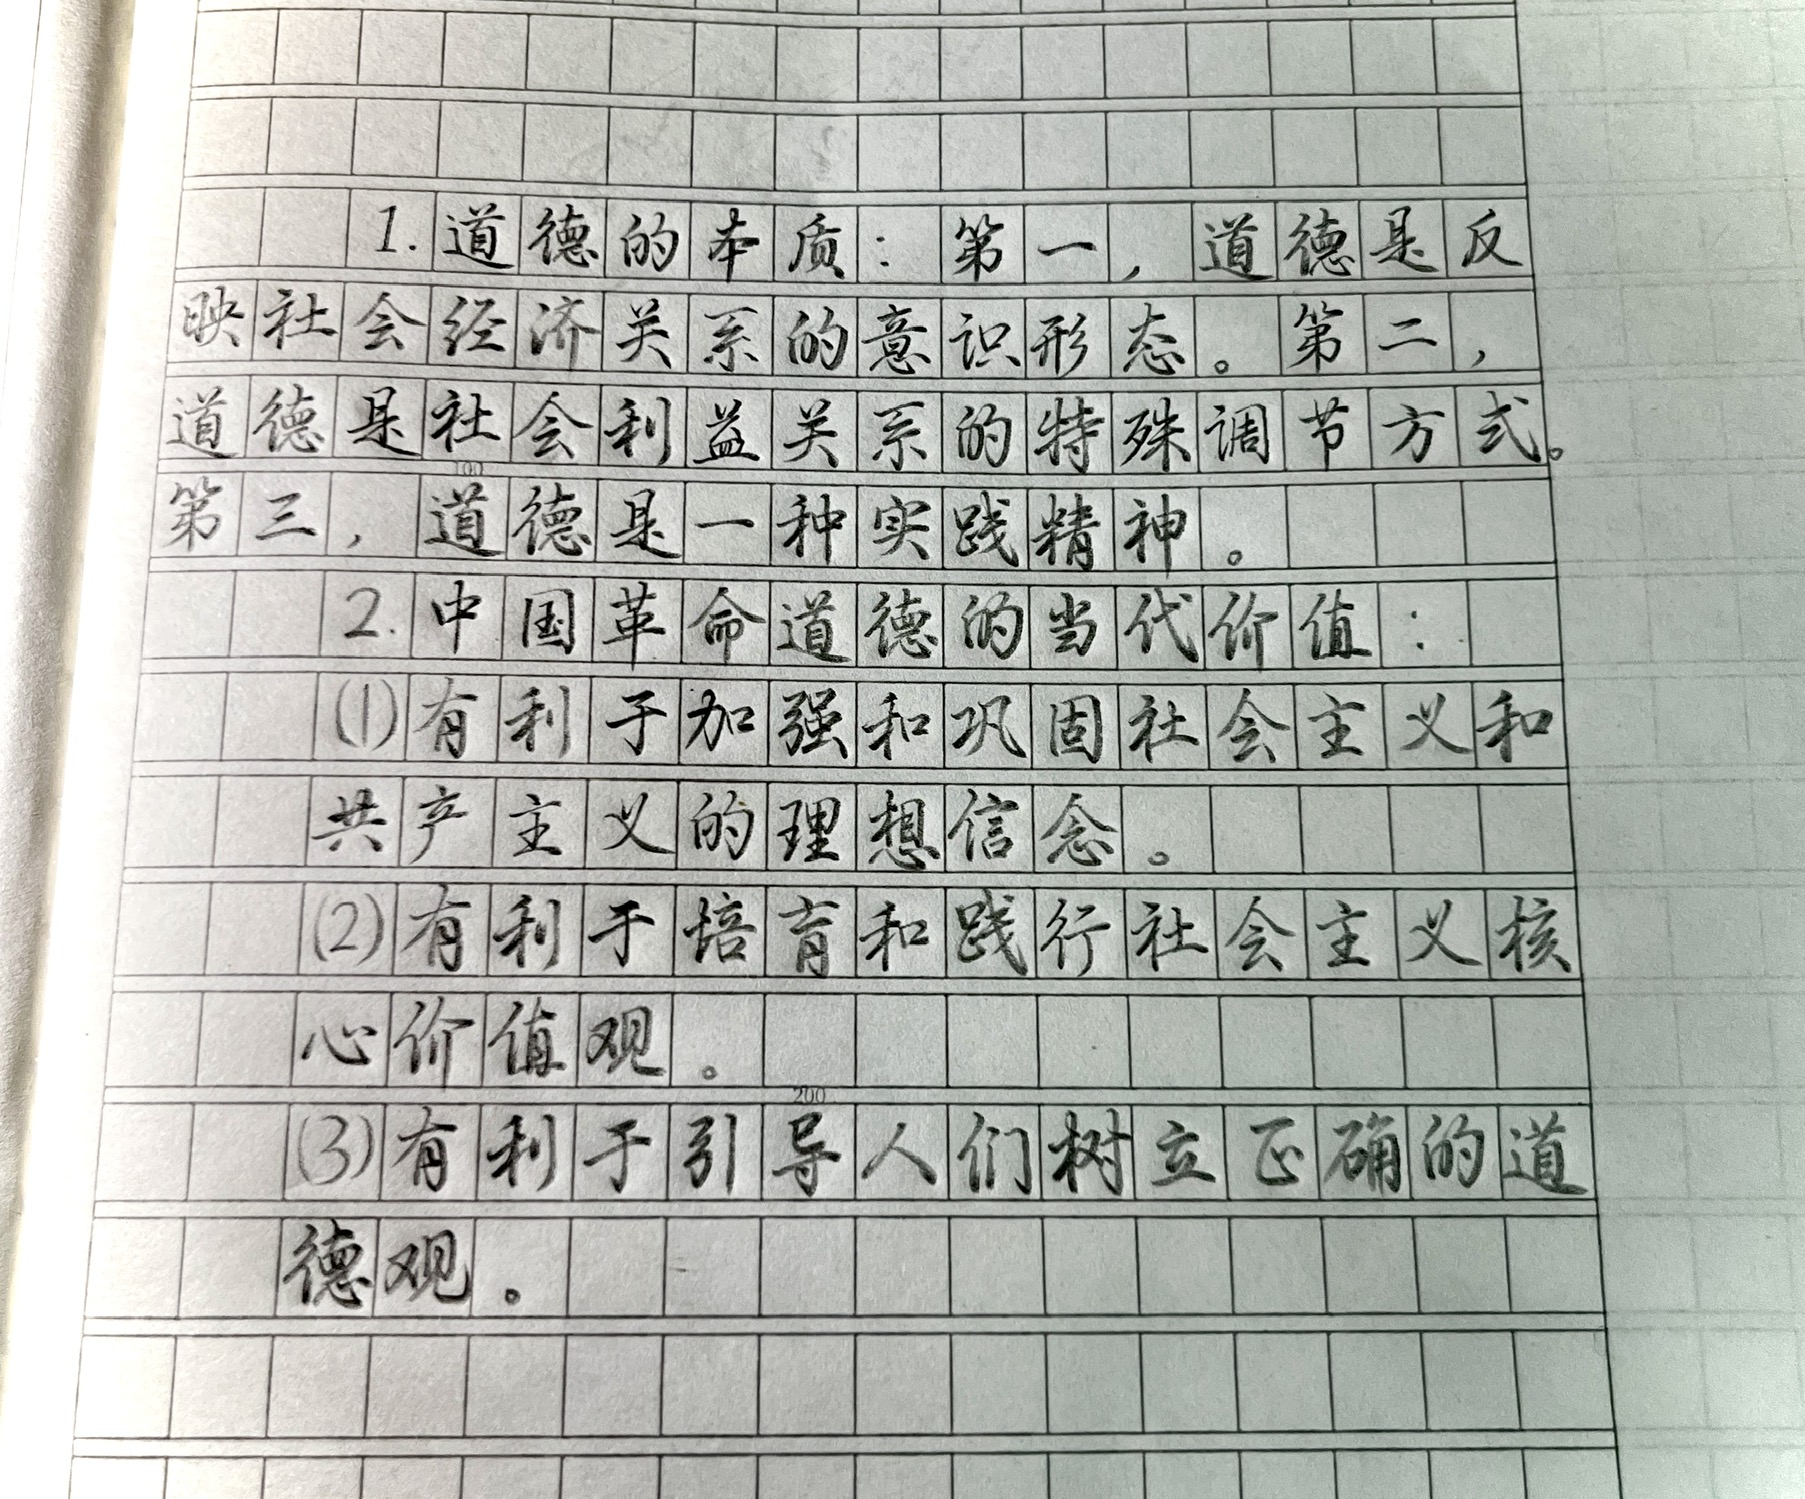 1.道德的本质：第一，道德是反
映社会经济关系的意识形态。第二，
道德是社会利益关系的特殊调节方式。
100
第三，道德是一种实践精神。
2.中国革命道德的当代价值：
(1)有利于加强和巩固社会主义和
共产主义的理想信念。
(2)有利于培育和践行社会主义核
心价值观。
200
(3)有利于引导人们树立正确的道
德观。